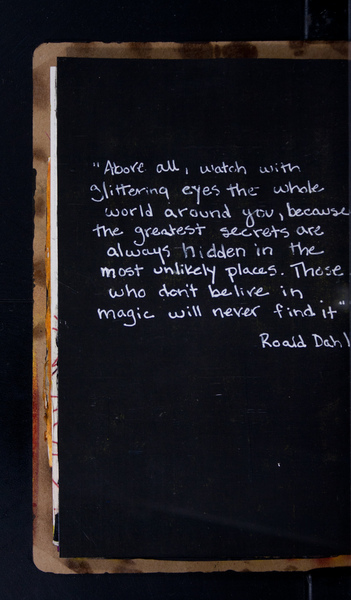 "Above all, watch with
glittering eyes the whole
world around you, because
the greatest secrets are
always hidden in the
most unlikely places. Those
who don't belive in
magic will never find it"
Roald Dahl